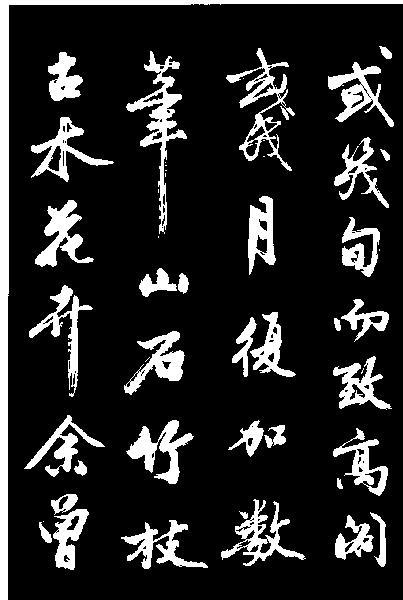 或幾旬而致高閣
或幾月復加數
筆山石竹枝
古木花卉余曾